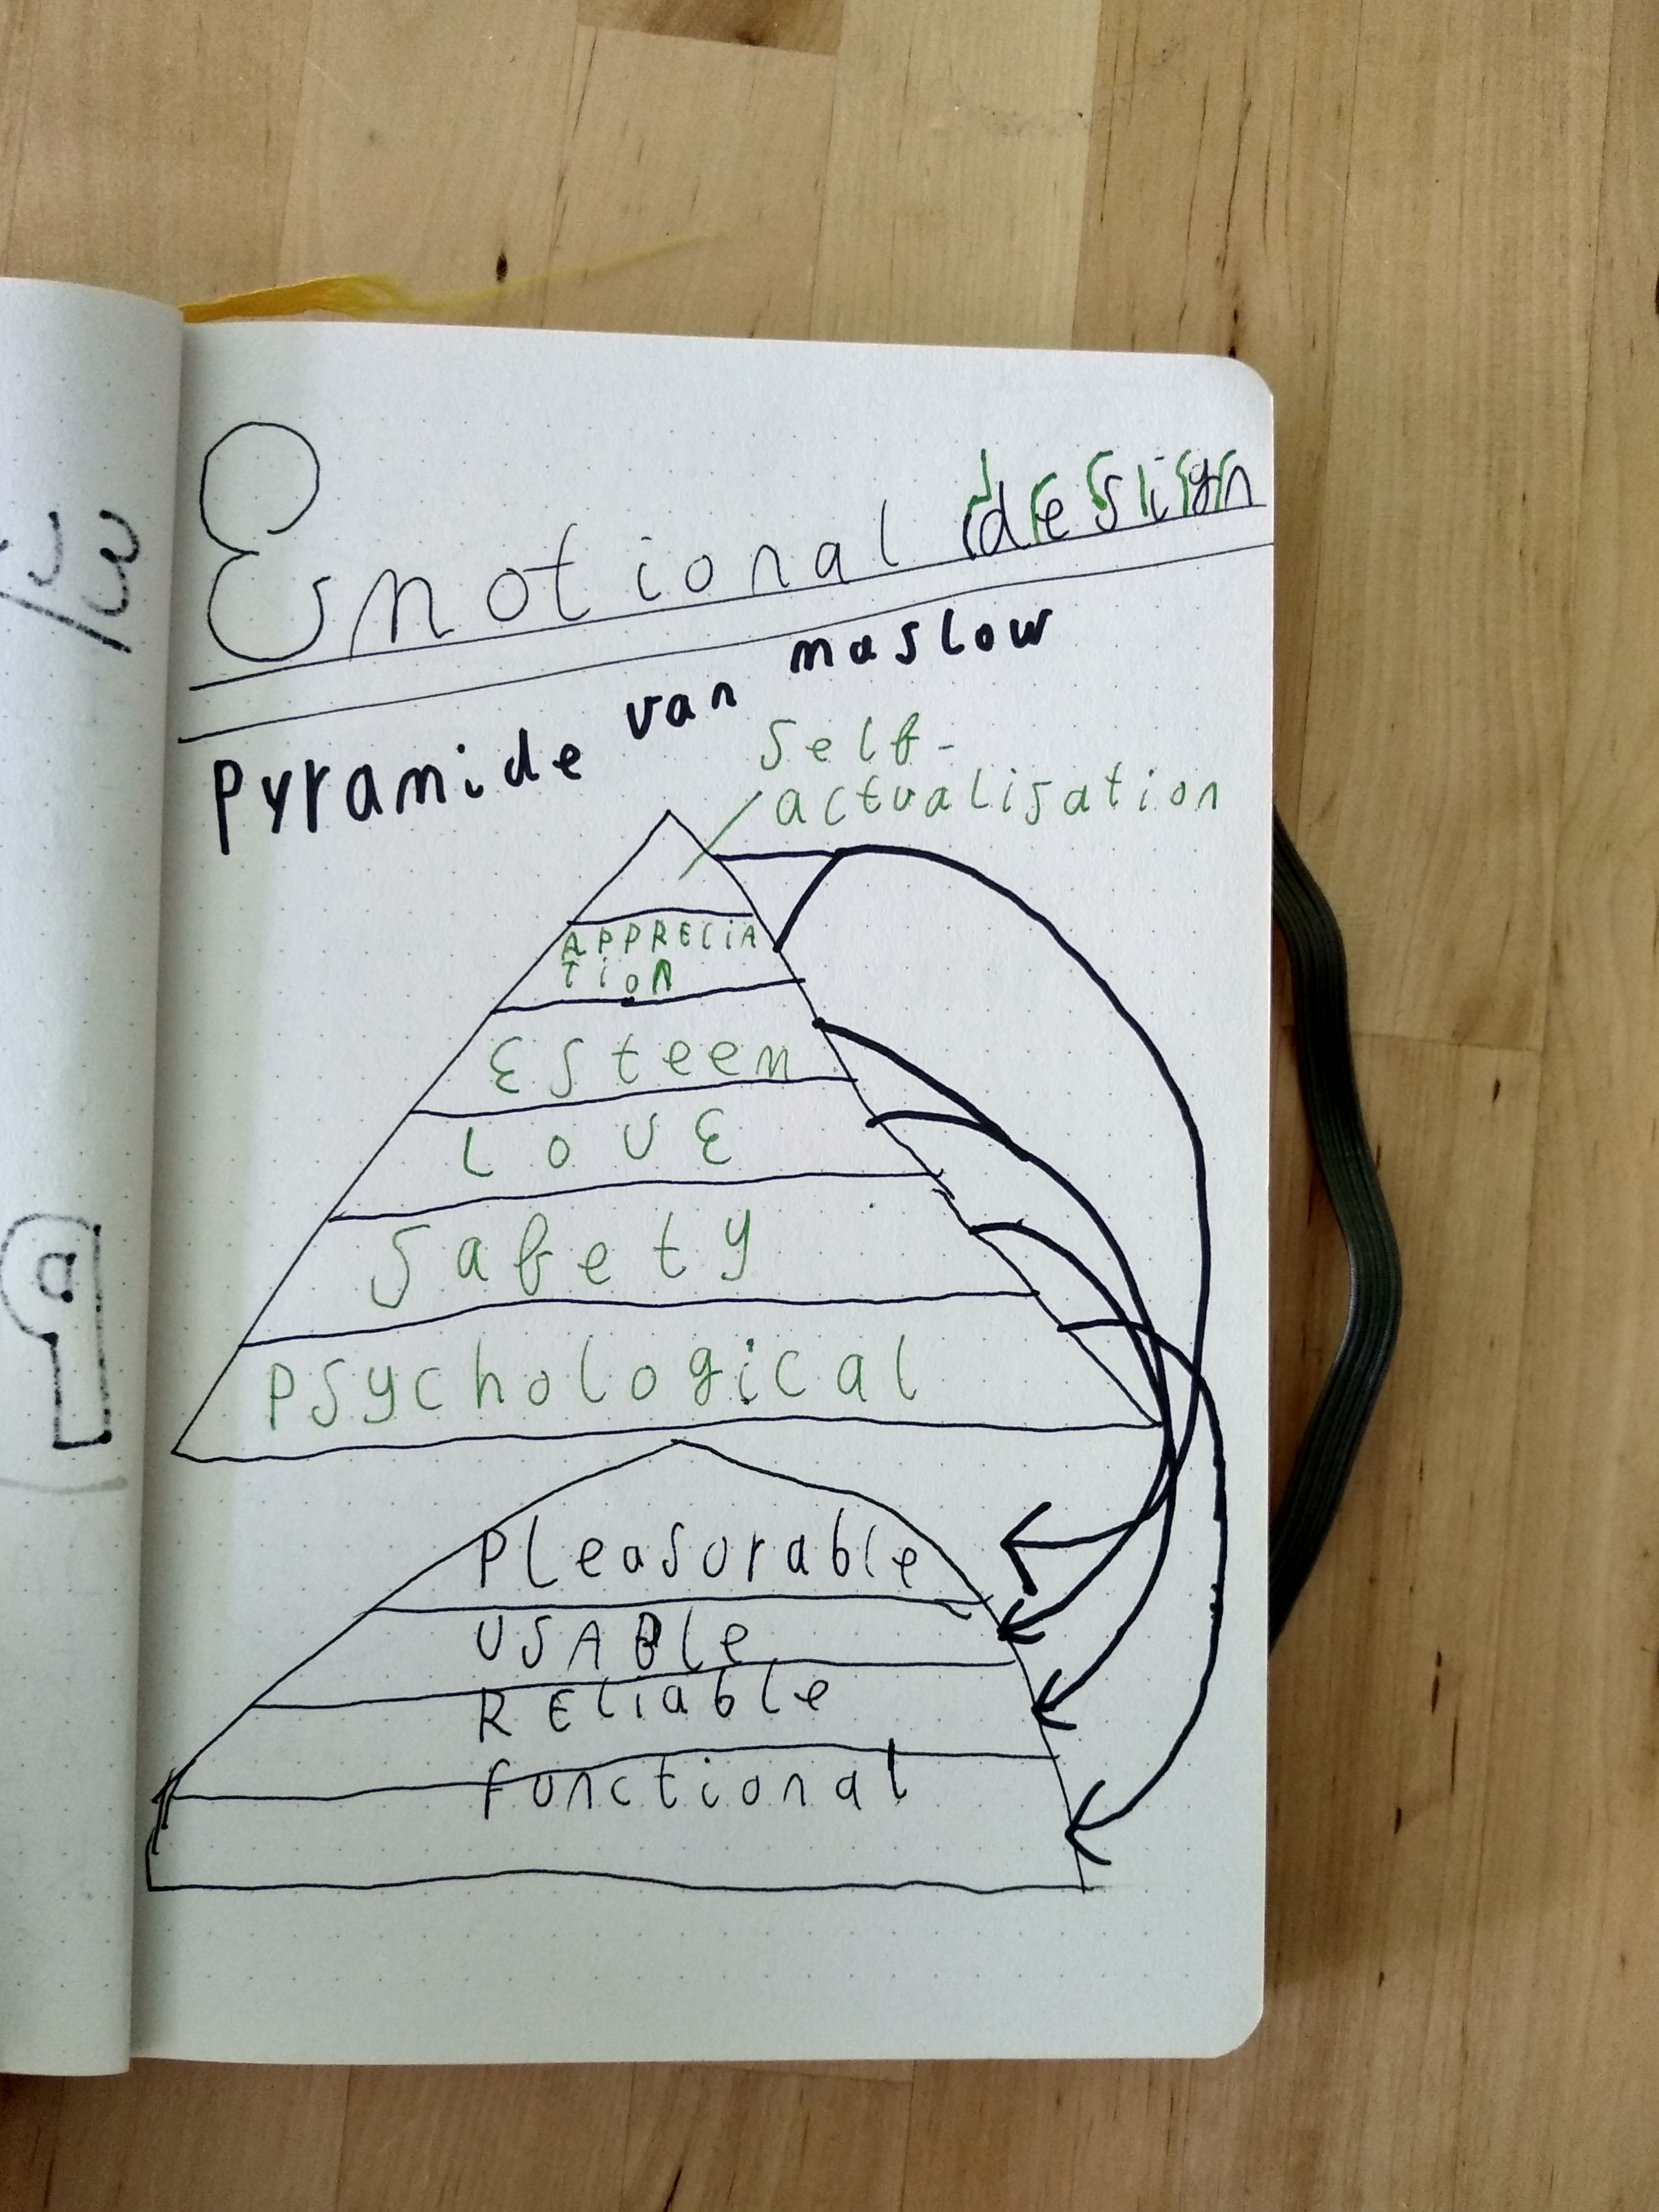 Emotional design
Pyramide van maslow
Self-
actualisation
APPRECIA
TION
Esteem
LOVE
Safety
Psychological
Pleasurable
USABle
REliable
functional